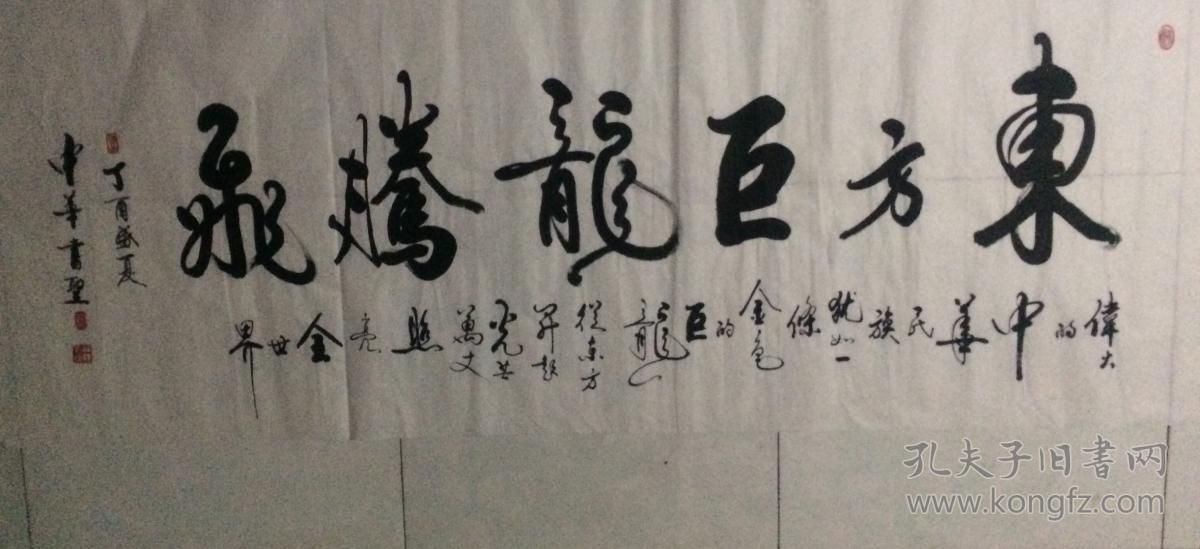 東方巨龍騰飛
偉大的中華民族猶如一條金色的巨龍從東方昇起光芒萬丈照亮全世界
丁酉盛夏
中華書聖
孔夫子旧書网
www.kongfz.com